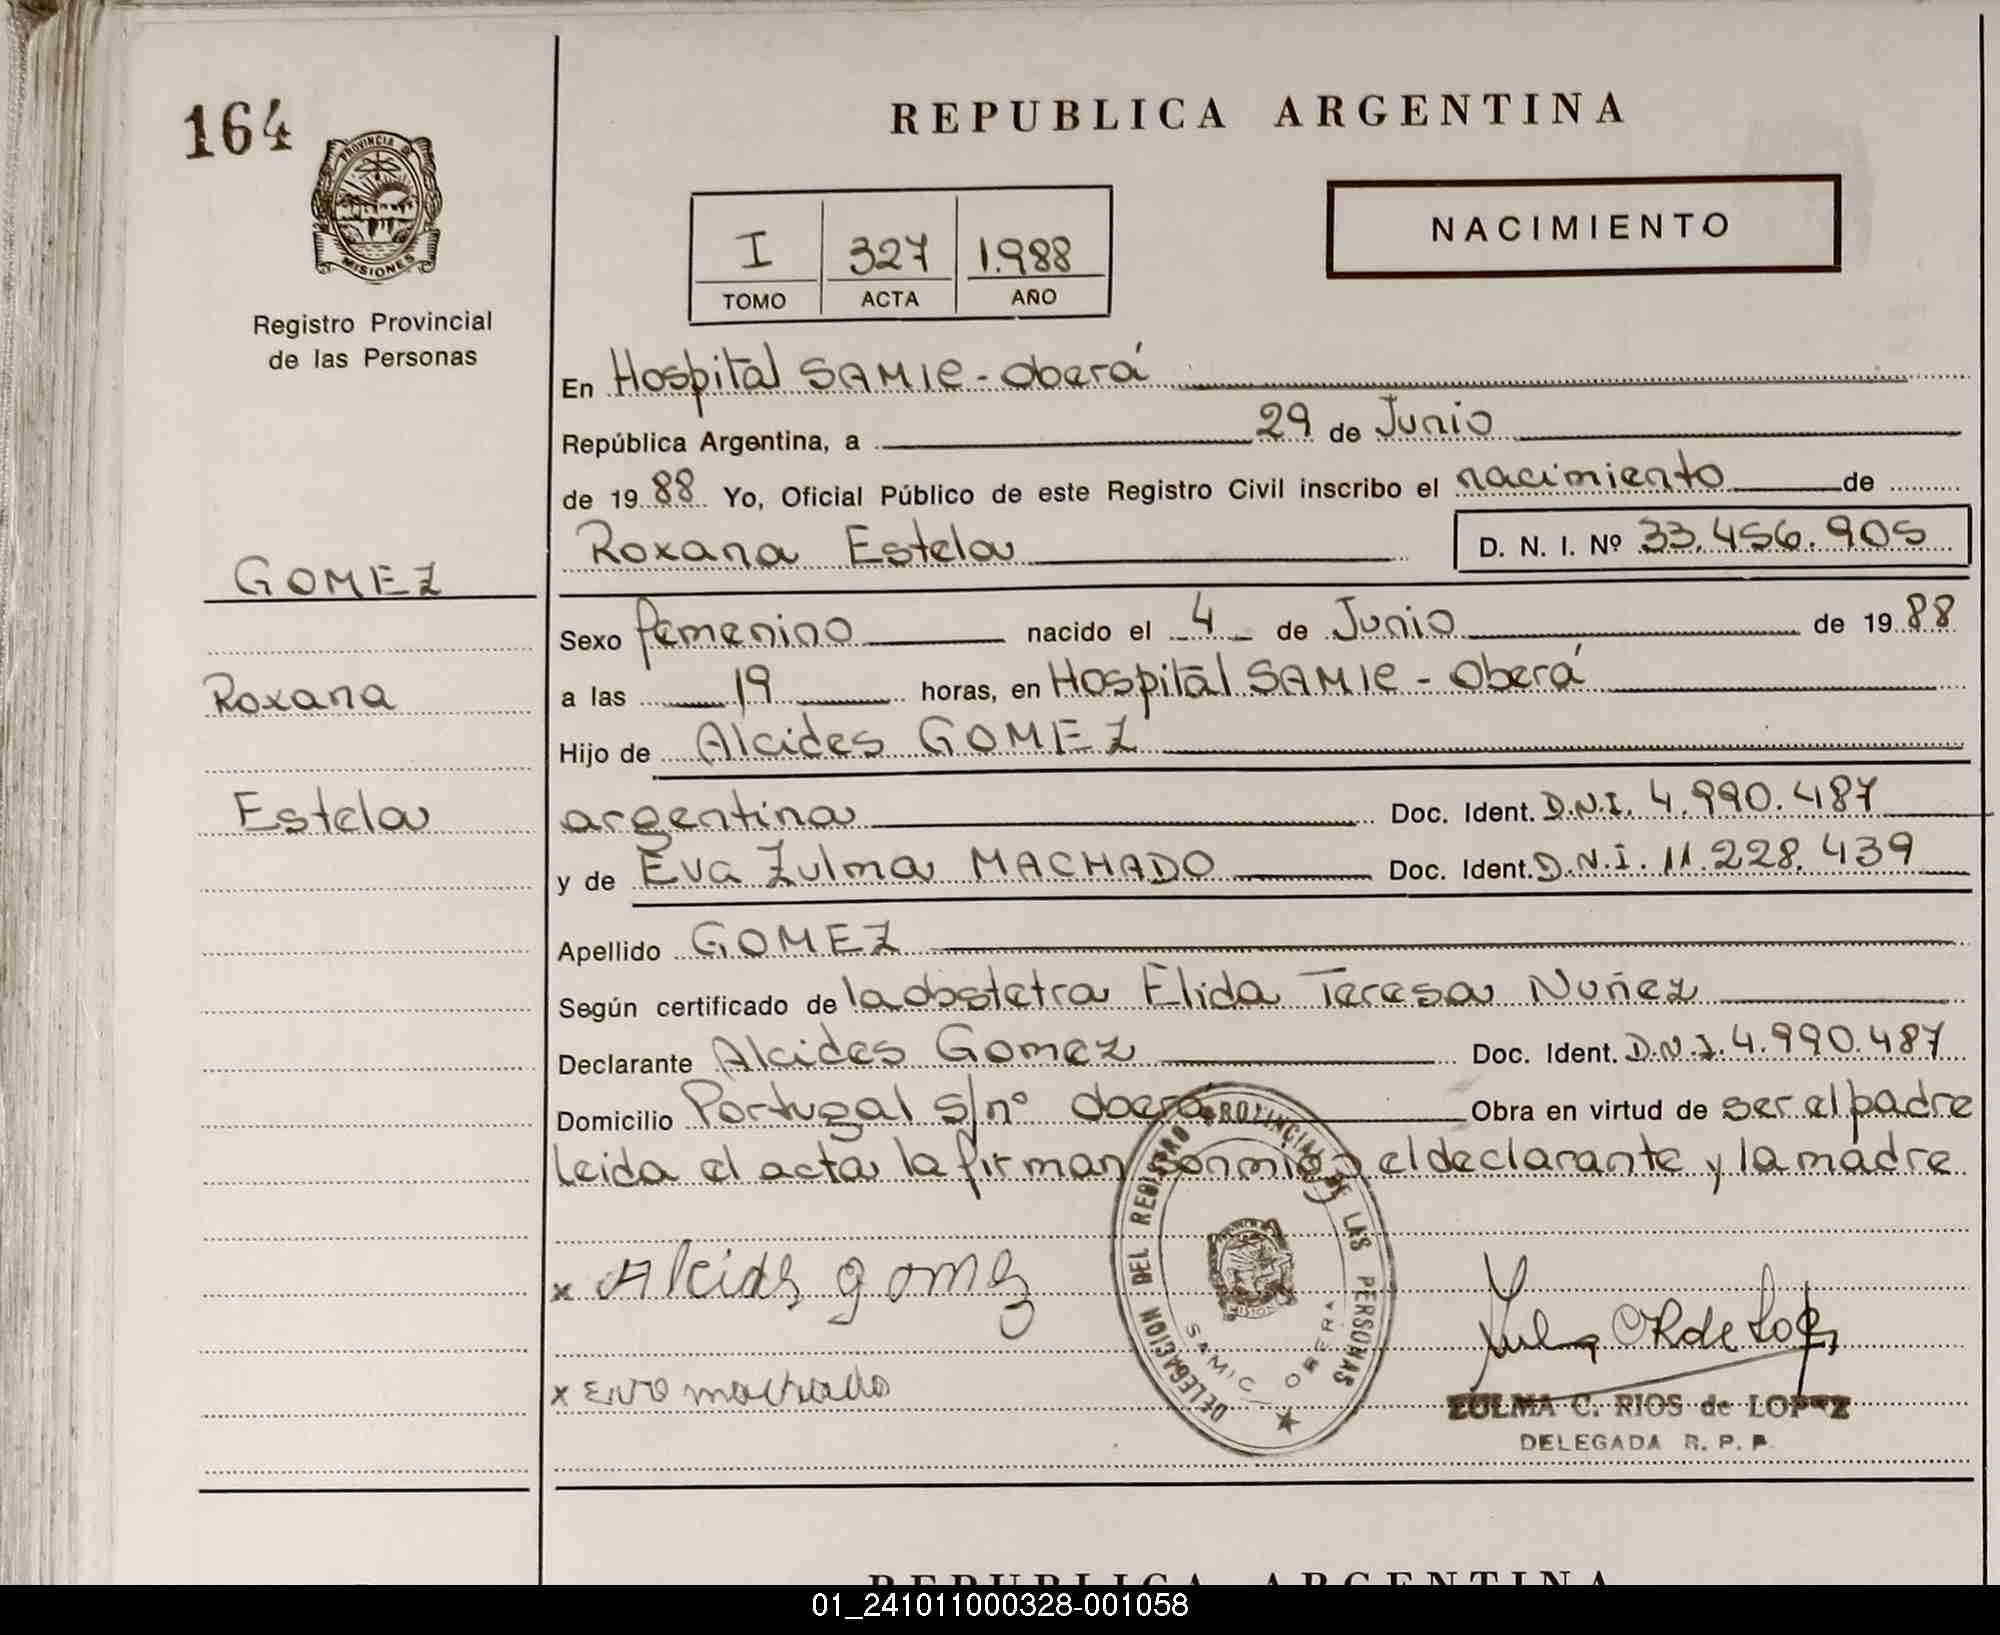 164
REPUBLICA ARGENTINA
PROVINCIA D
MISIONES
Registro Provincial
de las Personas
NACIMIENTO
I 327 1.988
TOMO ACTA AÑO
En Hospital SAMIC - Oberá
República Argentina, a 29 de Junio
de 1988 Yo, Oficial Público de este Registro Civil inscribo el nacimiento de
Roxana Estela D. N. I. Nº 33.456.905
GOMEZ
Roxana
Estela
Sexo femenino nacido el 4 de Junio de 1988
a las 19 horas, en Hospital SAMIC - Oberá
Hijo de Alcides GOMEZ
argentina Doc. Ident. D.N.I. 4.990.487
y de Eva Zulma MACHADO Doc. Ident. D.N.I. 11.228.439
Apellido GOMEZ
Según certificado de la obstetra Elida Teresa Nuñez
Declarante Alcides Gomez Doc. Ident. D.N.I. 4.990.487
Domicilio Portugal s/nº Oberá Obra en virtud de ser el padre
leida el acta la firman conmigo el declarante y la madre
DELEGACION DEL REGISTRO PROVINCIAL DE LAS PERSONAS
SAMIC OBERA
x Alcides gomez
x Eva machado
ZULMA C. RIOS de LOPEZ
DELEGADA R. P. P.
REPUBLICA ARGENTINA
01_241011000328-001058